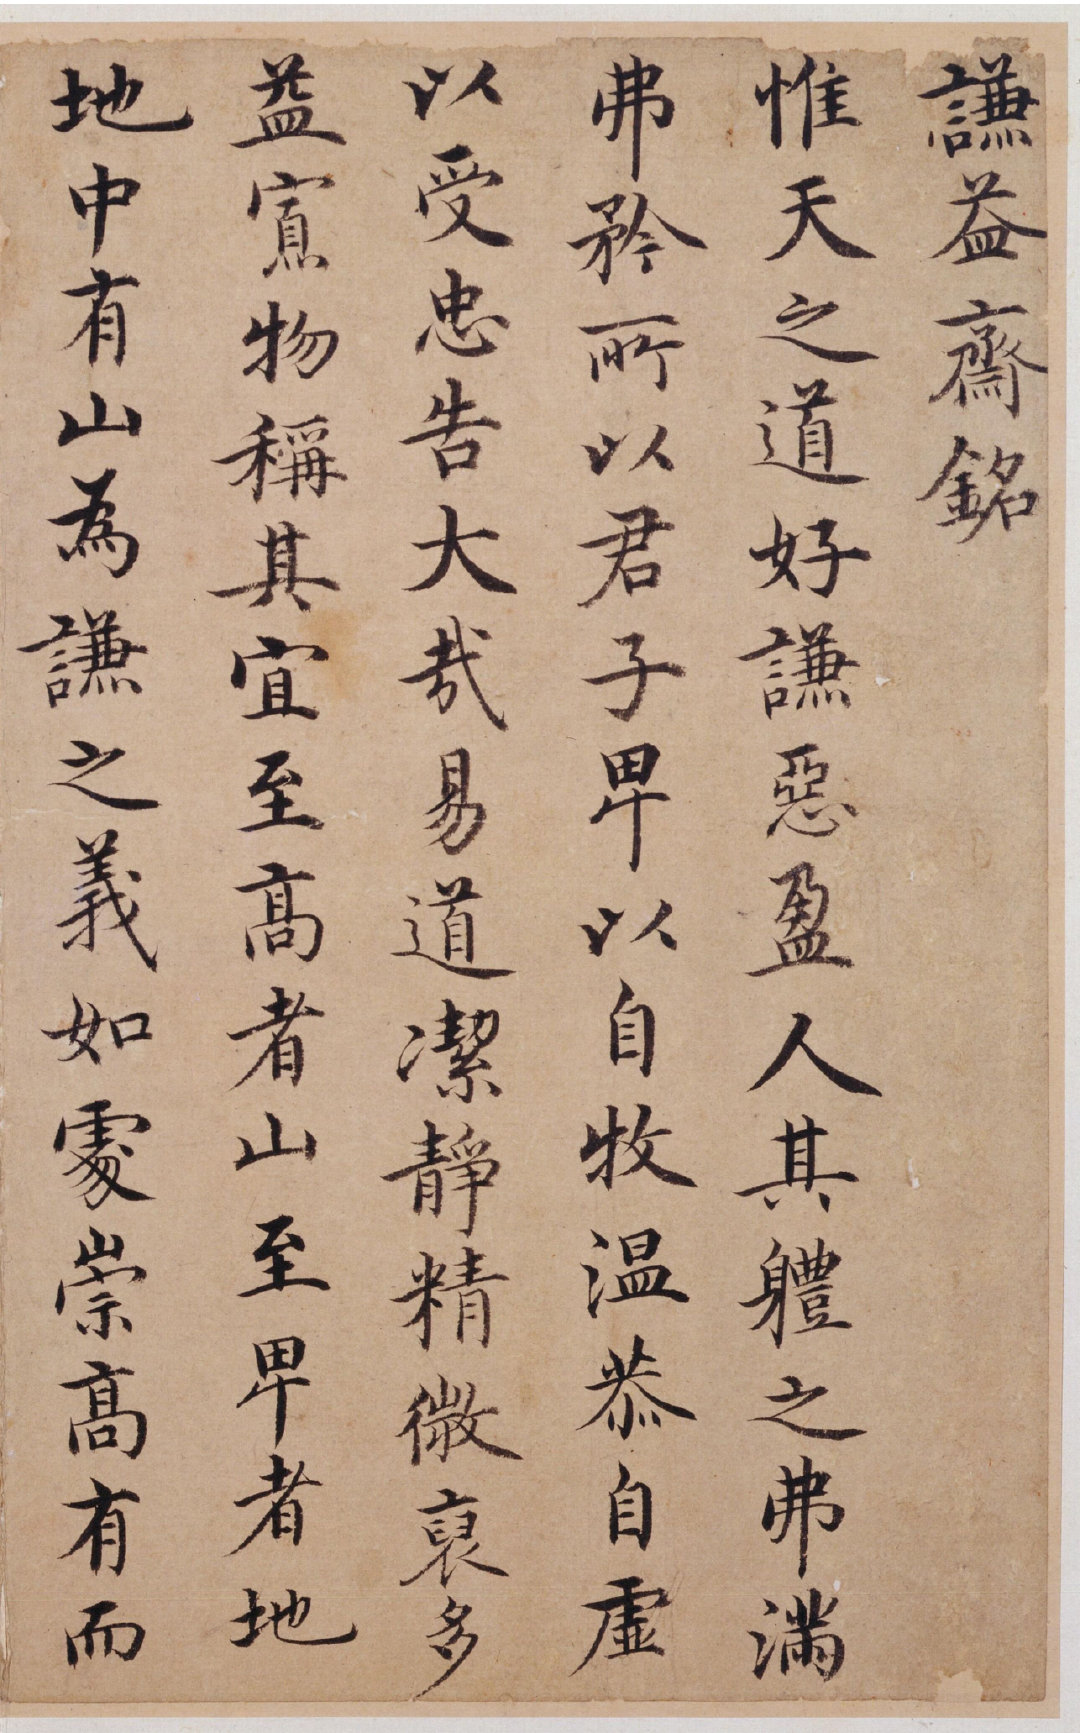 謙益齋銘
惟天之道好謙惡盈人其軆之弗滿
弗矜所以君子卑以自牧温恭自虛
以受忠告大哉易道潔靜精微裒多
益寡物稱其宜至髙者山至卑者地
地中有山為謙之義如處崇髙有而